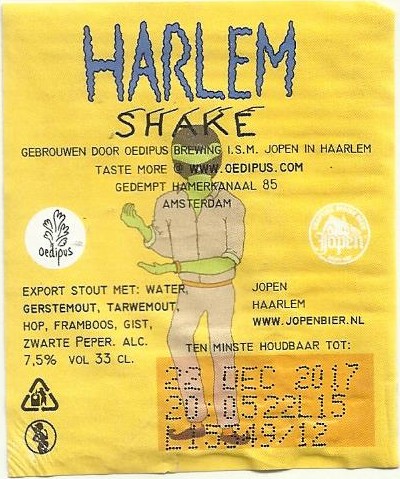 HARLEM
SHAKE
GEBROUWEN DOOR OEDIPUS BREWING I.S.M. JOPEN IN HAARLEM
TASTE MORE @ WWW.OEDIPUS.COM
GEDEMPT HAMERKANAAL 85
AMSTERDAM
Oedipus
Jopen
EXPORT STOUT MET: WATER,
GERSTEMOUT, TARWEMOUT,
HOP, FRAMBOOS, GIST,
ZWARTE PEPER. ALC.
7,5% VOL 33 CL.
JOPEN
HAARLEM
WWW.JOPENBIER.NL
TEN MINSTE HOUDBAAR TOT:
22 DEC 2017
20 0522L15
L15349/12